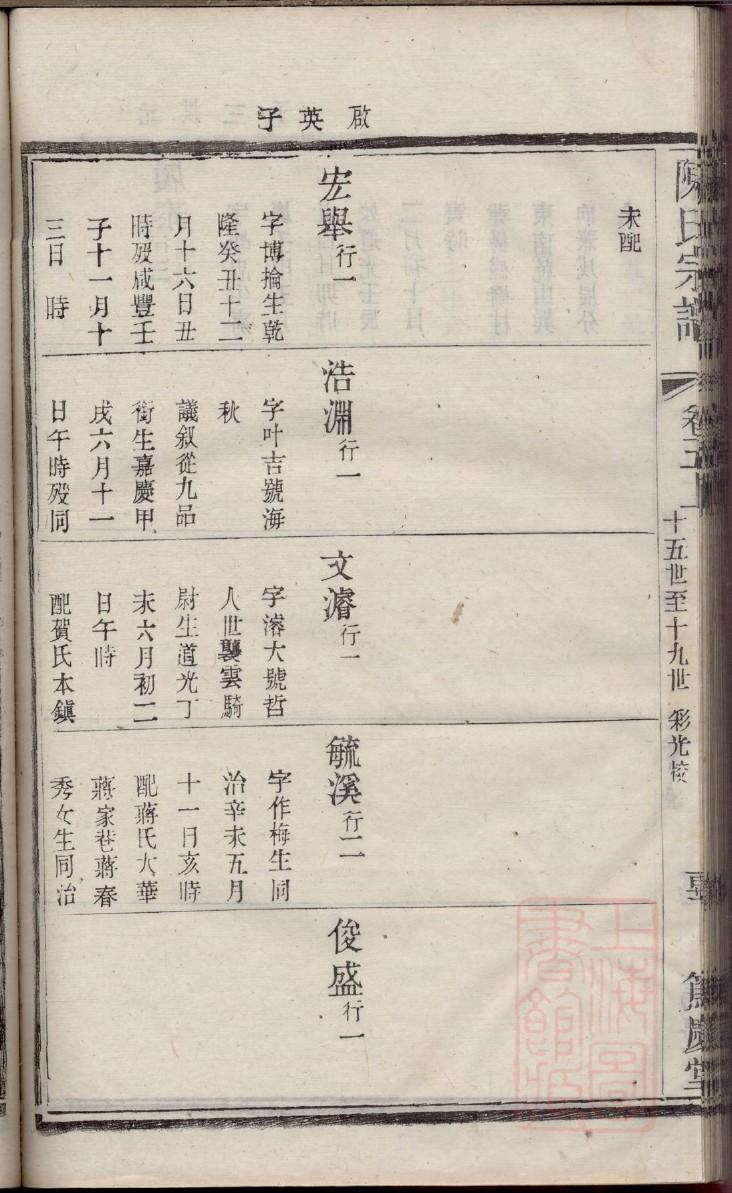 啟英子
未配
宏舉行一
字博掄生乾
隆癸丑十二
月十六日丑
時歿咸豐壬
子十一月十
三日 時
浩淵行一
字叶吉號海
秋
議叙從九品
銜生嘉慶甲
戌六月十一
日午時歿同
文濬行一
字濬大號哲
人世襲雲騎
尉生道光丁
未六月初二
日午時
配賀氏本鎭
毓溪行二
字作梅生同
治辛未五月
十一日亥時
配蔣氏大華
蔣家巷蔣春
秀女生同治
俊盛行一
陳氏宗譜
卷五上
十五世至十九世 彩光校
篤慶堂
上海圖書館藏